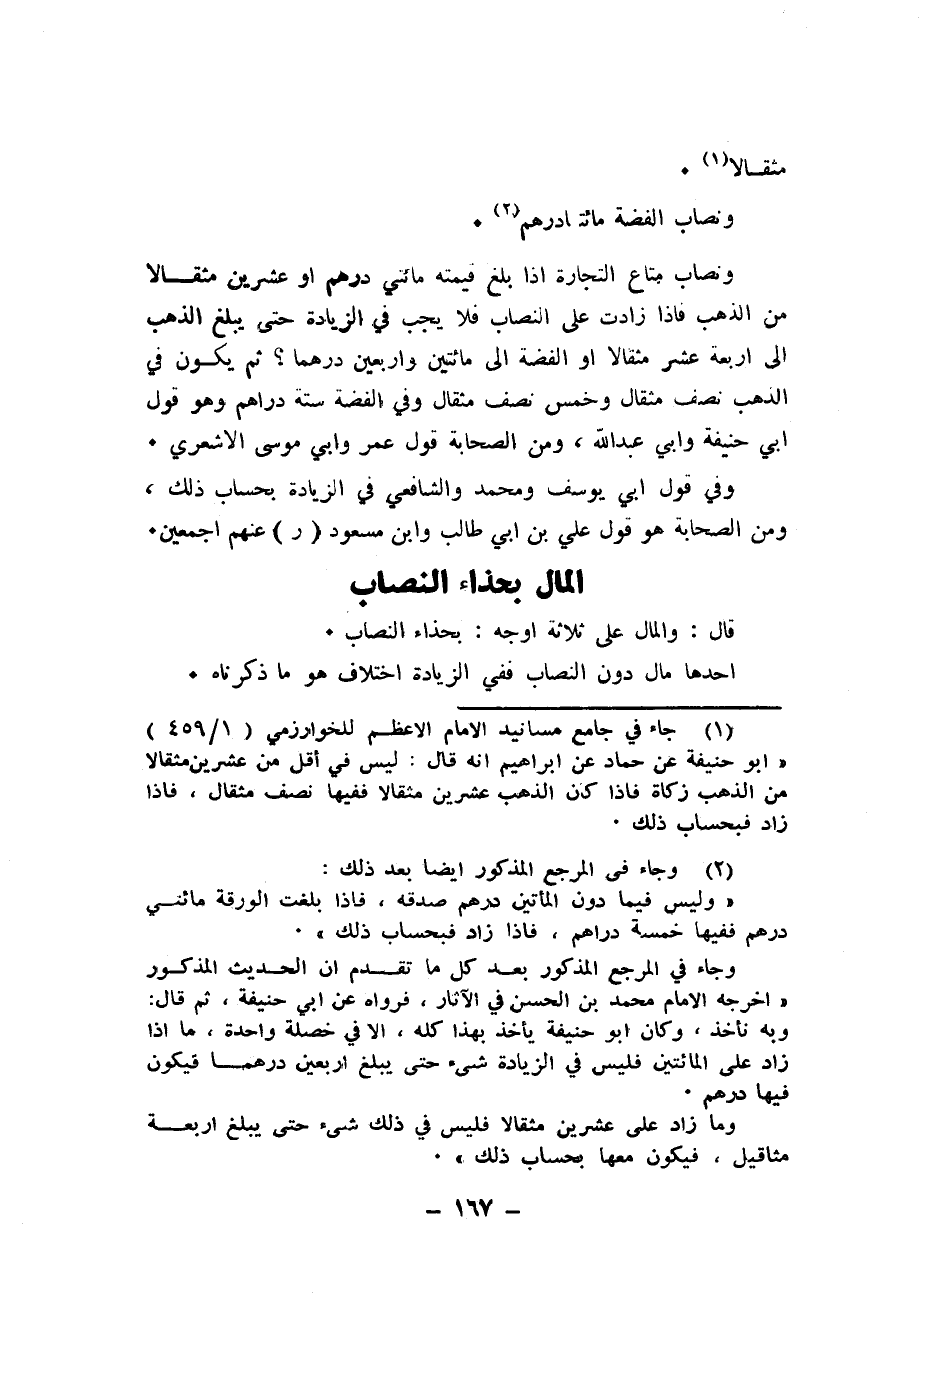 مثقـالا(١) .
ونصاب الفضة مائة ادرهم(٢) .
ونصاب متاع التجارة اذا بلغ قيمته مائتي درهم او عشرين مثقـــالا
من الذهب فاذا زادت على النصاب فلا يجب في الزيادة حتى يبلغ الذهب
الى اربعة عشر مثقالا او الفضة الى مائتين واربعين درهما ؟ ثم يكـون في
الذهب نصف مثقال وخمس نصف مثقال وفي الفضة ستة دراهم وهو قول
ابي حنيفة وابي عبدالله ، ومن الصحابة قول عمر وابي موسى الاشعري .
وفي قول ابي يوسف ومحمد والشافعي في الزيادة بحساب ذلك ،
ومن الصحابة هو قول علي بن ابي طالب وابن مسعود ( ر ) عنهم اجمعين.
المال بحذاء النصاب
قال : والمال على ثلاثة اوجه : بحذاء النصاب .
احدها مال دون النصاب ففي الزيادة اختلاف هو ما ذكرناه .
(١) جاء في جامع مسانيد الامام الاعظـم للخوارزمي ( ٤٥٩/١ )
« ابو حنيفة عن حماد عن ابراهيم انه قال : ليس في أقل من عشرين مثقالا
من الذهب زكاة فاذا كان الذهب عشرين مثقالا ففيها نصف مثقال ، فاذا
زاد فبحساب ذلك .
(٢) وجاء فى المرجع المذكور ايضا بعد ذلك :
« وليس فيما دون المأتين درهم صدقه ، فاذا بلغت الورقة مائتـــي
درهم ففيها خمسة دراهم ، فاذا زاد فبحساب ذلك » .
وجاء في المرجع المذكور بعـد كل ما تقـــدم ان الحديث المذكـور
« اخرجه الامام محمد بن الحسن في الآثار ، فرواه عن ابي حنيفة ، ثم قال:
وبه نأخذ ، وكان ابو حنيفة يأخذ بهذا كله ، الا في خصلة واحدة ، ما اذا
زاد على المائتين فليس في الزيادة شىء حتى يبلغ اربعين درهمـــا فيكون
فيها درهم .
وما زاد على عشرين مثقالا فليس في ذلك شىء حتى يبلغ اربعـــة
مثاقيل ، فيكون معها بحساب ذلك » .
– ١٦٧ –